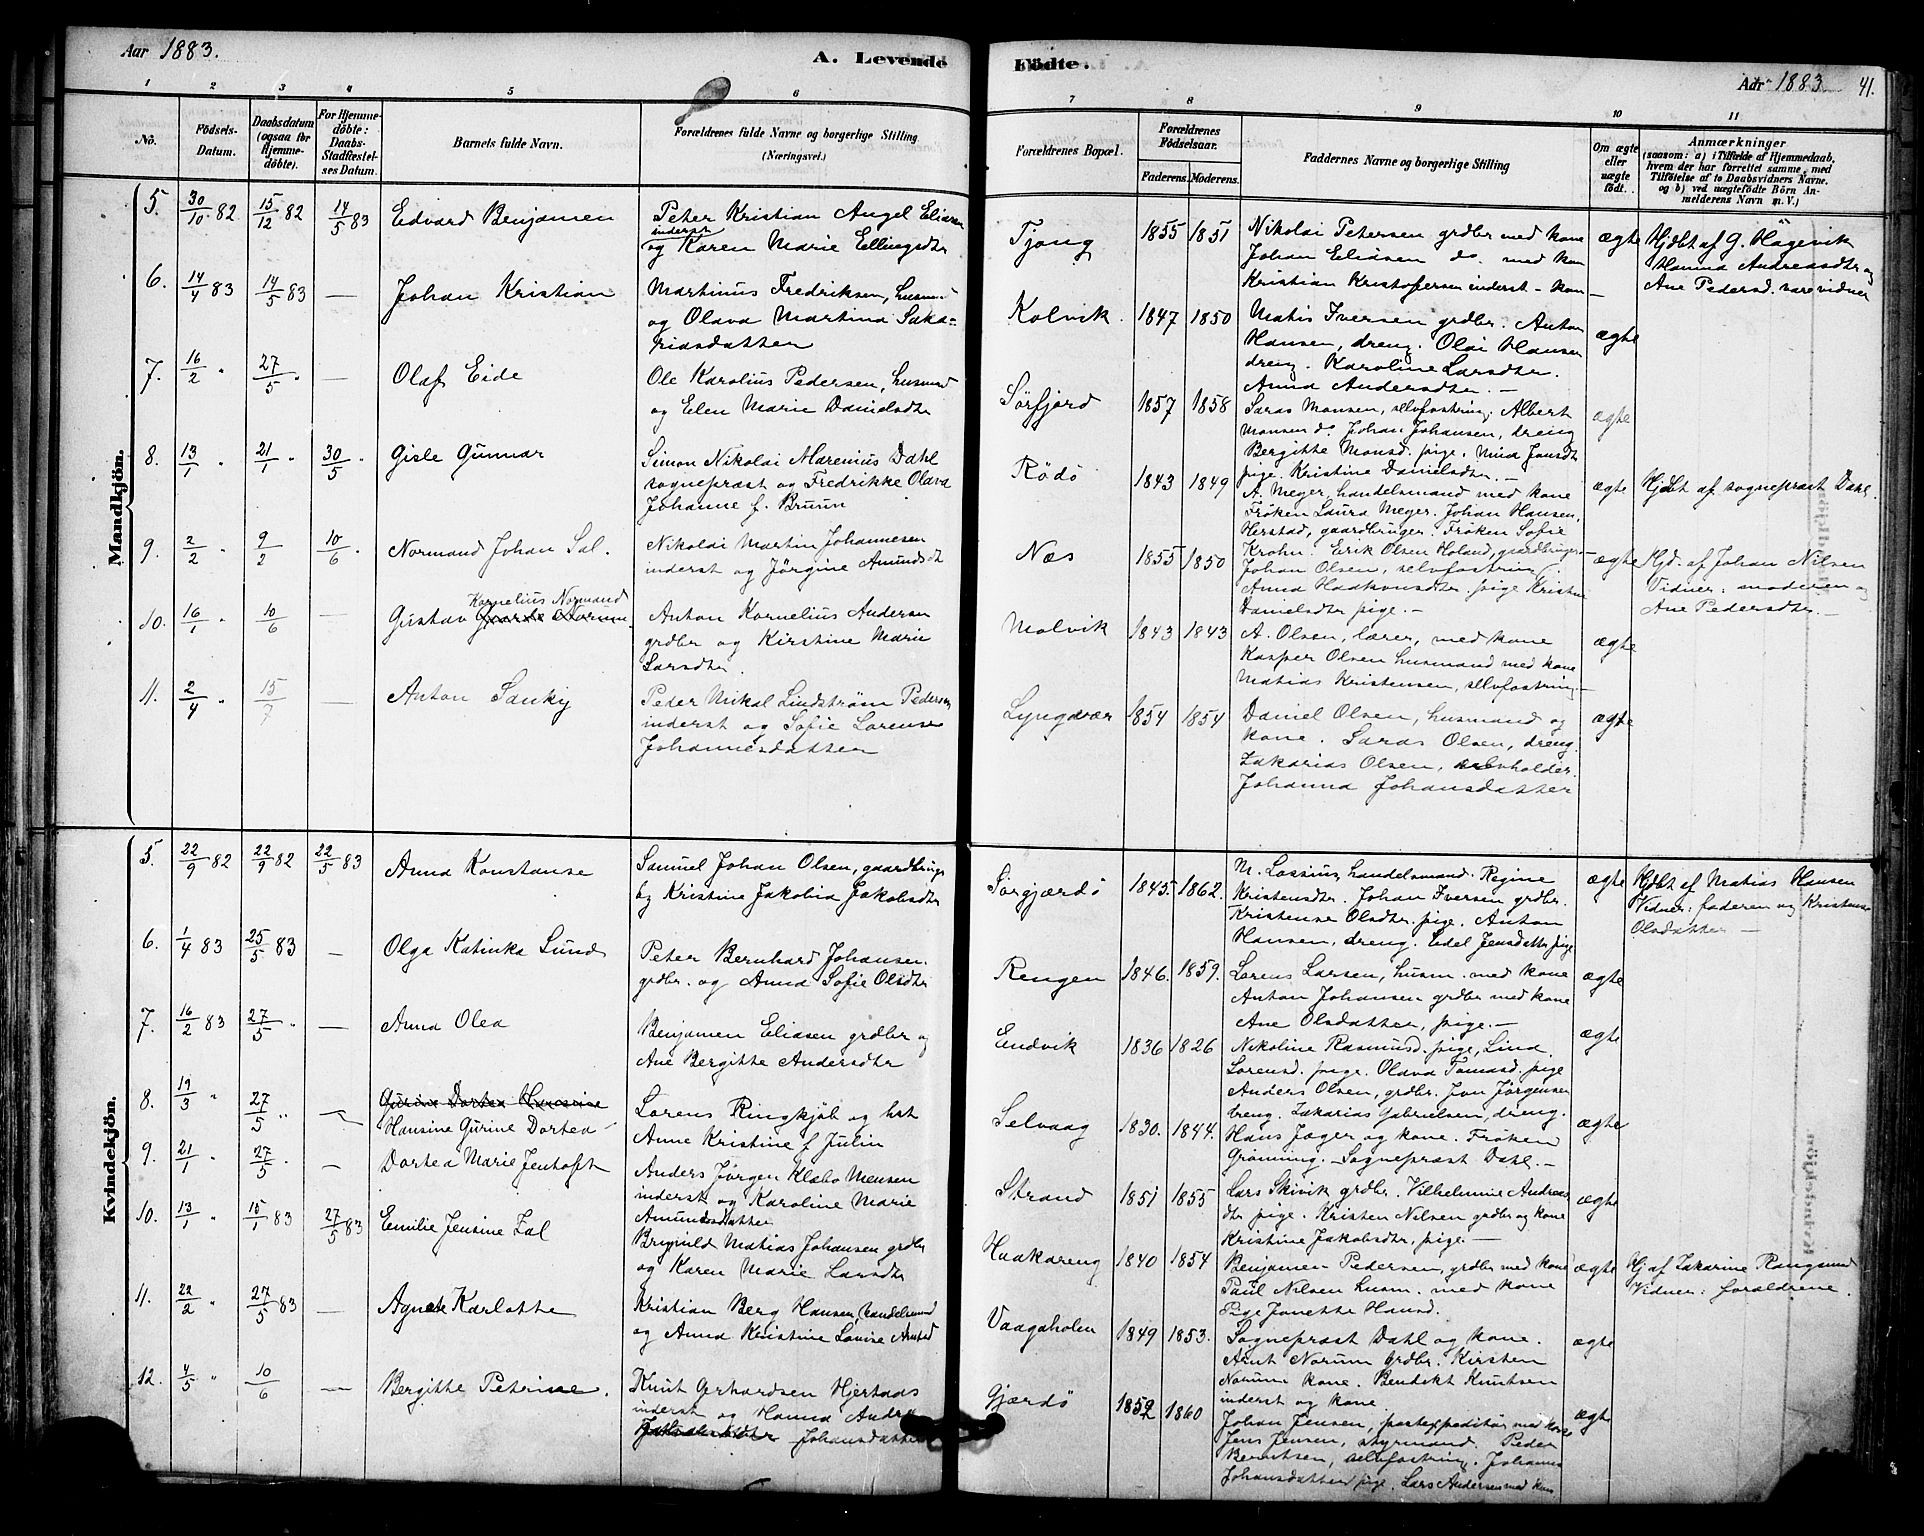 Aar 1883.
A. Levende
Födte.
Aar 1883
41.
1 2 3 4 5 6
7 8 9 10 11
No.
Födsels-Datum.
Daabsdatum (ogsaa for Hjemme-döbte).
For Hjemme-döbte: Daabs-Stadfæstel-ses Datum.
Barnets fulde Navn.
Forældrenes fulde Navne og borgerlige Stilling
(Næringsvei.)
Forældrenes Bopæl.
Forældrenes Födselsaar.
Faderens. Moderens.
Faddernes Navne og borgerlige Stilling
Om ægte eller uægte födt.
Anmærkninger
(saasom: a) i Tilfælde af Hjemmedaab,
hvem der har forrettet samme, med
Tilföielse af to Daabsvidners Navne.
og b) ved uægtefödte Börn An-
melderens Navn m. V.)
Mandkjön.
5. 30/10 82 15/12 82 14/5 83 Edvard Benjamen
Peter Kristian Angel Eliasen
inderst
og Karen Marie Ellingsdtr
Tjong 1855 1851
Nikolai Petersen grdbr med kone
Johan Eliasen do. med kon
Kristian Kristofersen inderst - kon
ægte
Hjdbt af G. Hågevik
Hanna Andreasdtr og
Ane Pedersd. vare vidner
6. 14/4 83 14/5 83 — Johan Kristian
Martinus Fredriksen, husm
og Olava Martina Saka=
riasdatter
Kolvik. 1847 1850
Matis Iversen grdbr. Anton
Hansen, dreng. Olai Hansen
dreng. Karoline Larsdtr.
Anna Andersdtr. —
ægte
7. 16/2 " 27/5 " — Olaf Eide
Ole Karolius Pedersen, husmnd
og Elen Marie Danielsdtr
Sörfjord 1857 1858
Saras Monsen, selvfostring. Albert
Monsen do. Johan Johansen, dreng
Bergitte Monsd. pige. Mina Jonsdtr
pige. Kristine Danielsdtr. —
ægte
8. 13/1 " 21/1 " 30/5 " Gisle Gunnar
Simon Nikolai Marenius Dahl
sognepræst og Fredrikke Olava
Johanne f. Bruun
Rödö 1843 1849
A. Meyer, handelsmand med kone
Fröken Laura Meyer. Johan Hansen,
Herstad, gaardbruger. Fröken Sofie
Krohn. Erik Olsen Holand, gaardbruger —
ægte
Hjdbt af sognepræst Dahl.
9. 2/2 " 9/2 10/6 " Normand Johan Sal.
Nikolai Martin Johannesen
inderst og Jörgine Amundsdt
Næs 1855 1850
Johan Olsen, selvfostring
Anna Haakonsdtr. pige Kristen
Danielsdtr pige. —
ægte
Hjd. af Johan Nilsen
Vidner: moderen og
Ane Pedersdtr. —
10. 16/1 " 10/6 — Kornelius Normand
Gustav
Anton Kornelius Andersen
grdbr og Kirstine Marie
Larsdtr.
Molvik 1843 1843
A. Olsen, lærer, med kone
Kasper Olsen husmand med kone
Matias Kristensen, selvfostring. —
ægte
11. 2/4 " 15/7 — Anton Sanky
Peder Mikal Lindström Pedersen
inderst og Sofie Lorense
Johannesdatter
Lyngvær 1854 1854
Daniel Olsen, husmand og
kone. Saras Olsen, dreng.
Zakarias Olsen,
Johanna Johansdatter
ægte
Kvindekjön.
5. 22/9 82 22/9 82 22/5 83 Anna Konstanse
Samuel Johan Olsen, gaardbruger
og Kristine Jakobia Jakobsdtr
Sörgjærdö 1845. 1862.
M. Lossius, handelsmand. Regine
Kristensdtr. Johan Iversen grdbr.
Kristense Olsdtr. pige. Anton
Hansen, dreng. Edel Jensdatter pige
ægte
Hjdbt af Matias Hansen
Vidner: faderen og Kristense
Olsdatter —
6. 1/4 83 25/5 83 — Olga Katinka Lund
Peter Bernhard Johansen.
grdbr. og Anna Sofie Olsdtr
Rengen 1846. 1859.
Lorens Larsen, husm. med kone
Anton Johansen grdbr med kone
Ane Olsdatter, pige. —
ægte
7. 16/2 83 27/5 " — Anna Olea
Benjamen Eliasen grdbr og
Ane Bergitte Andersdtr
Endvik 1836 1826
Nikoline Rasmusd. pige, Lina
Lorensd. pige. Olava Tomasd. pige
Anders Olsen, grdbr. Jon Jörgensen
dreng. Zakarias Gabrielsen, dreng.
ægte
8. 19/3 " 27/5 " — Gurine Dortea Hansine
Hansine Gurine Dortea
Lorens Ringkjöb og hst
Anne Kristine f Julin
Selvaag 1830. 1844.
Hans Jager og kone. Fröken
Grönning. — Sognepræst Dahl. —
ægte
9. 21/1 27/5 " — Dortea Marie Jentoft
Anders Jörgen Klæbo Mensen
inderst og Karoline Marie
Amundsdatter
Strand 1851 1855
Lars Skivik grdbr. Vilhelmine Andreas
dtr pige. Kristen Nilsen grdbr og kone
Kristine Jakobsdtr, pige. —
ægte
10. 13/1 " 15/1 83 27/5 83 Emilie Jensine Zal
Brynild Matias Johansen grdbr
og Karen Marie Larsdtr
Haakareng 1840 1854
Benjamen Pedersen, grdbr med kone
Paul Nilsen husm. med kone
Pige Janette Hansd.
ægte
Hj af Zakarine Rangsund
Vidner: forældrene.
11. 22/2 " 27/5 83 — Agnete Karlotte
Kristian Berg Hansen, handelsmnd
og Anna Kristine Lovise Arntsd
Vaagaholm 1849 1853.
Sognepræst Dahl og kone.
Arnt Norum grdbr. Kirsten
Norum kone. Bendikt Knutsen
inderst og kone
ægte
12. 4/5 " 10/6 — Bergitte Petrine.
Knut Gerhardsen Hjertaas
inderst og Hanna Andrea
Johansdatter
Gjærdö 1852 1860
Johan Jensen, postexpeditör med kone
Jens Jensen, styrmand. Peder
Berntsen, selvfostring. Johanna
Johansdatter pige. Lars Andersen med kone
ægte